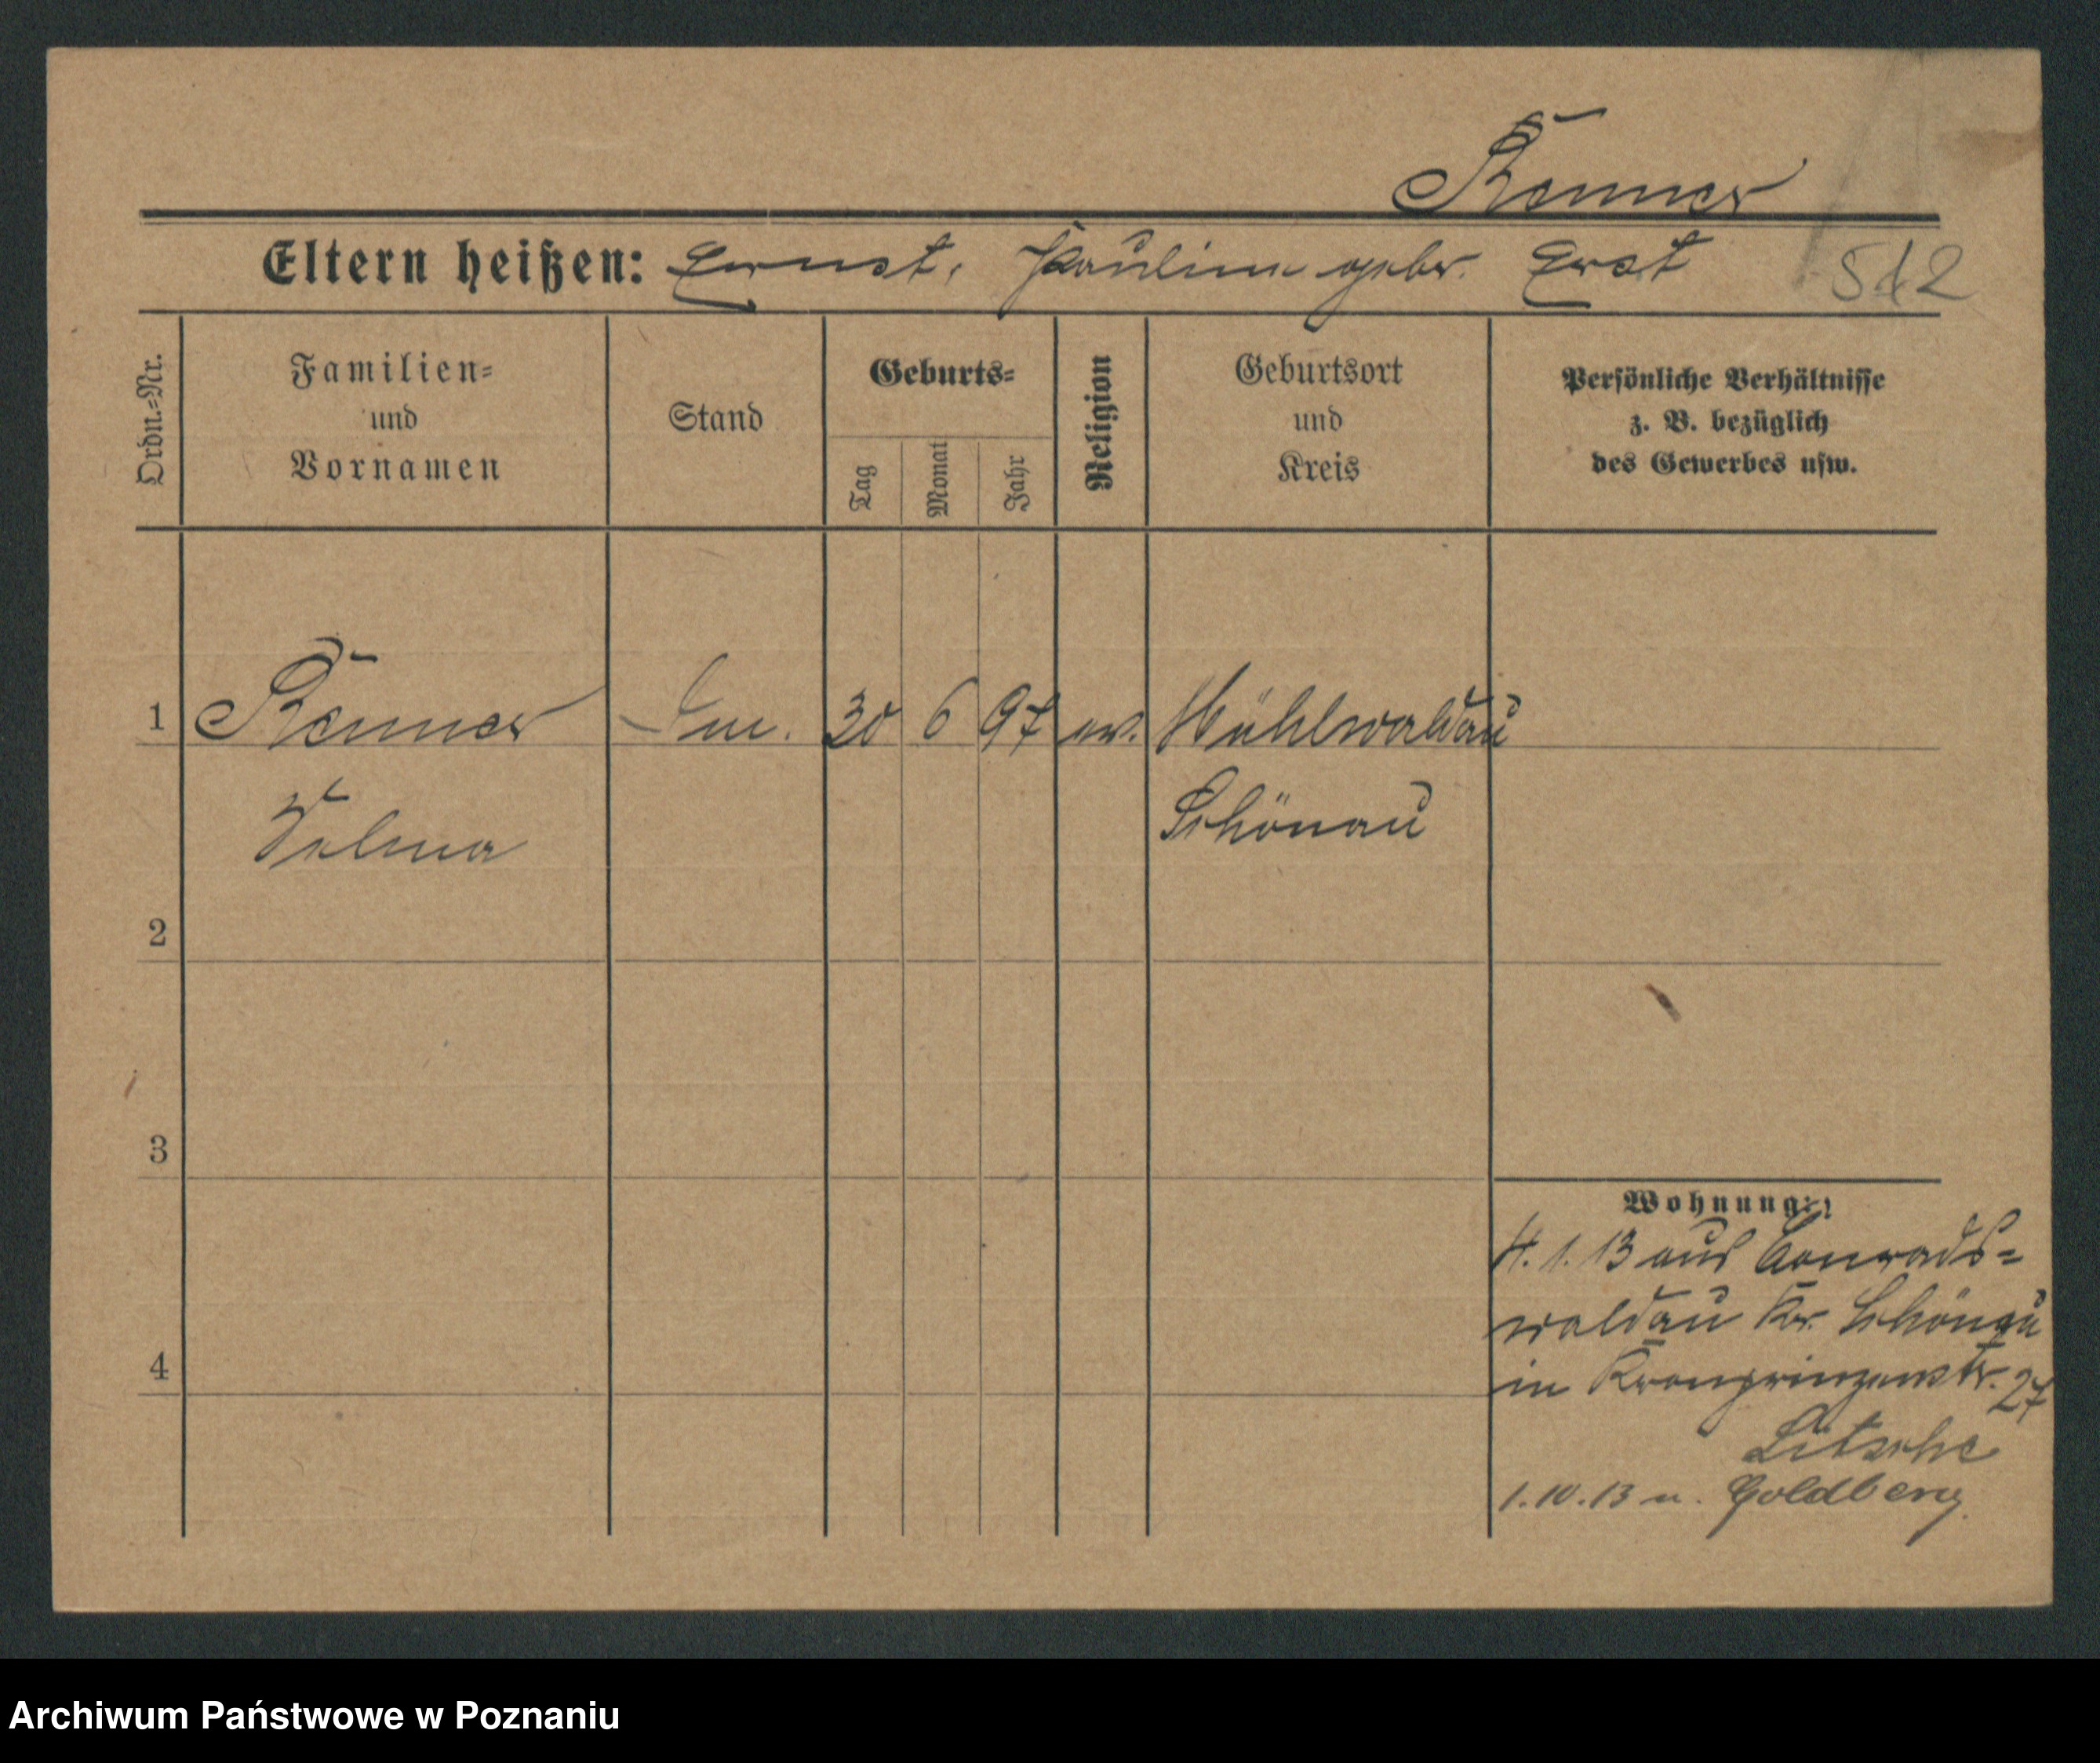 Renner
Eltern heißen: Ernst, Pauline gebr. Erst
512
Ordn.=Nr.
Familien=
und
Vornamen
Stand
Geburts=
Tag
Monat
Jahr
Religion
Geburtsort
und
Kreis
Persönliche Verhältnisse
z. B. bezüglich
des Gewerbes usw.
1 Renner 30 6 97 ev. Mühlwaldau
Selma Schönau
2
3
Wohnung:
4. 1. 13 aus Conrads=
waldau Kr. Schönau
4
in Kronprinzenstr. 27
Litsche
1.10.13 n. Goldberg.
Archiwum Państwowe w Poznaniu